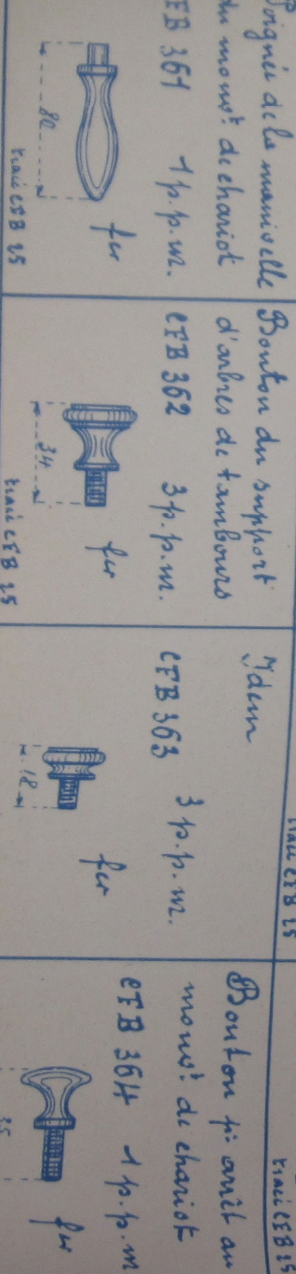 Poignée de la manivelle
du mouvt de chariot
EB 361 1 p.p.m.
80
fer
tracé CFB 25
Bouton du support
d'arbres de tambours
CFB 362 3 p.p.m.
34
fer
tracé CFB 25
Idem
CFB 363 3 p.p.m.
18
fer
tracé CFB 25
Bouton pr arrêt au
mouvt de chariot
CFB 364 1 p.p.m
35
fer
tracé CFB 25